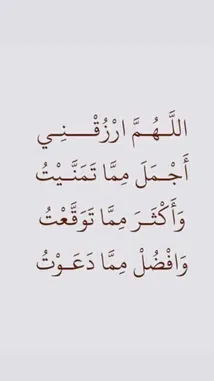 اللَّـهُـمَّ ارْزُقْـــنِــي
أَجْـمَلَ مِمَّا تَمَنَّـيْتُ
وَأَكْثَـرَ مِمَّا تَوَقَّعْتُ
وَافْضُلْ مِمَّا دَعَـوْتُ